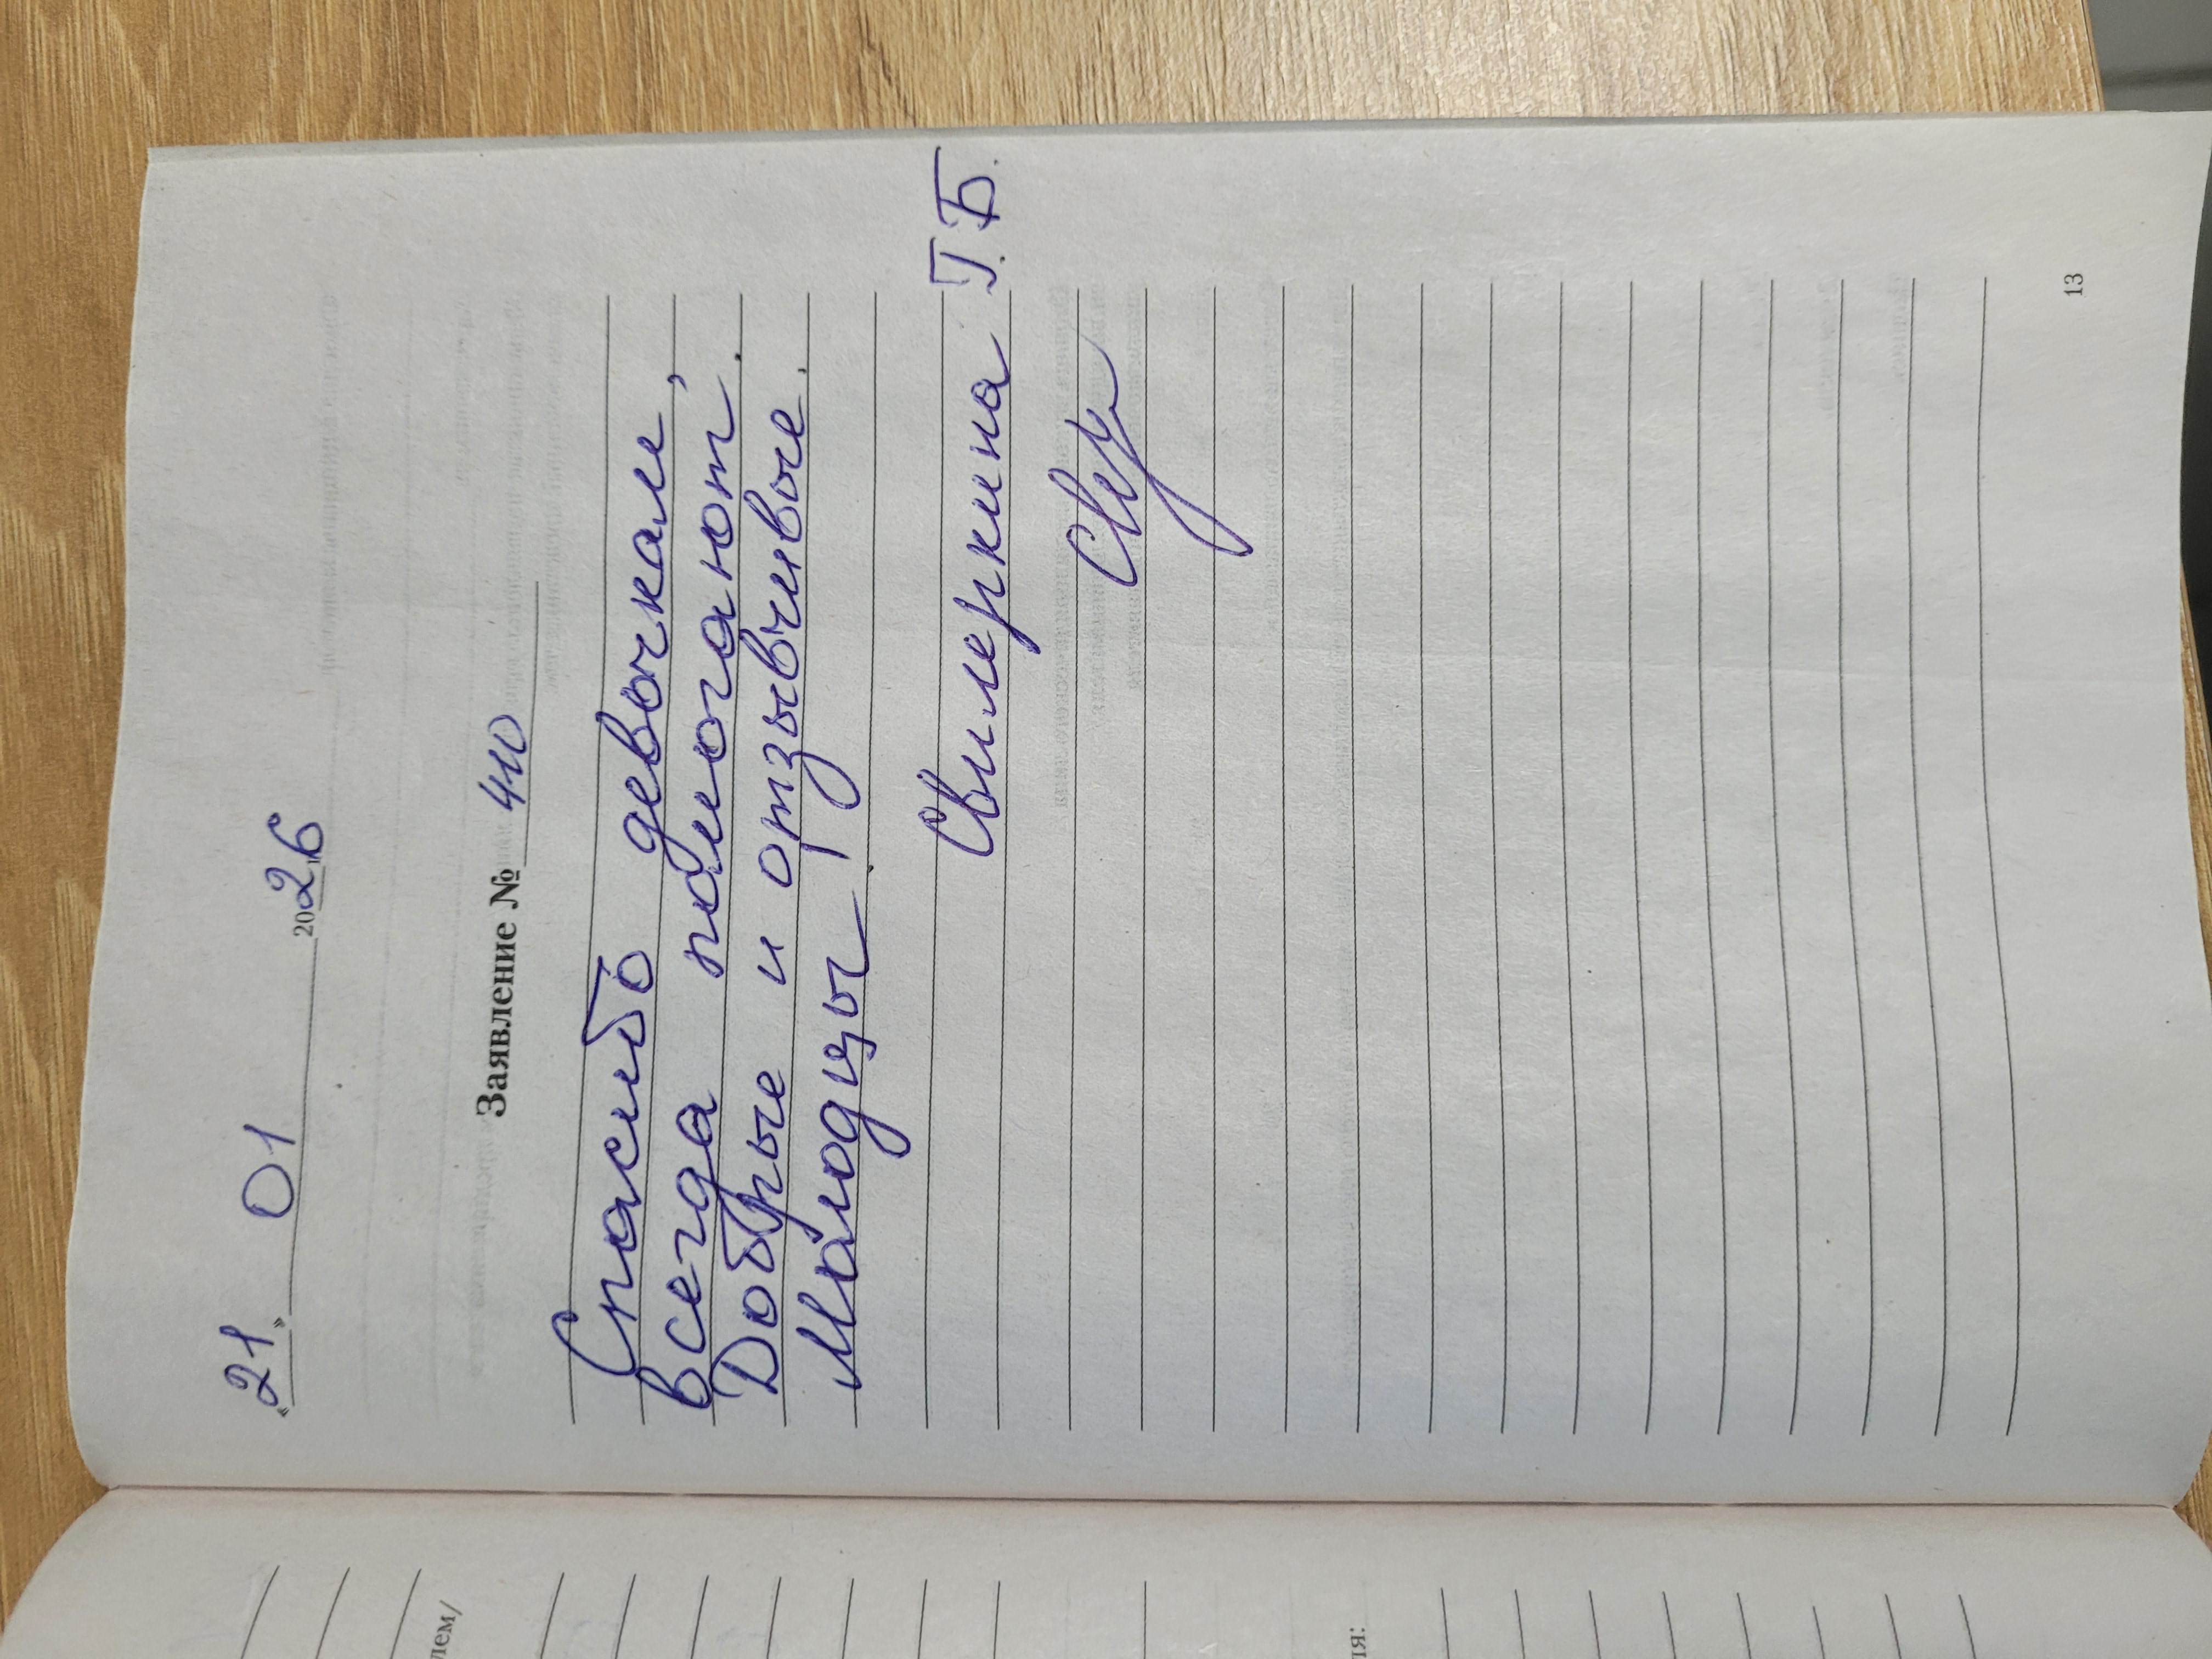 «21» 01 2026
Заявление № 410
Спасибо девочкам,
всегда помогают.
Добрые и отзывчивые.
Молодцы!
Свимеркина Т.Б.
13
лем/
ля: